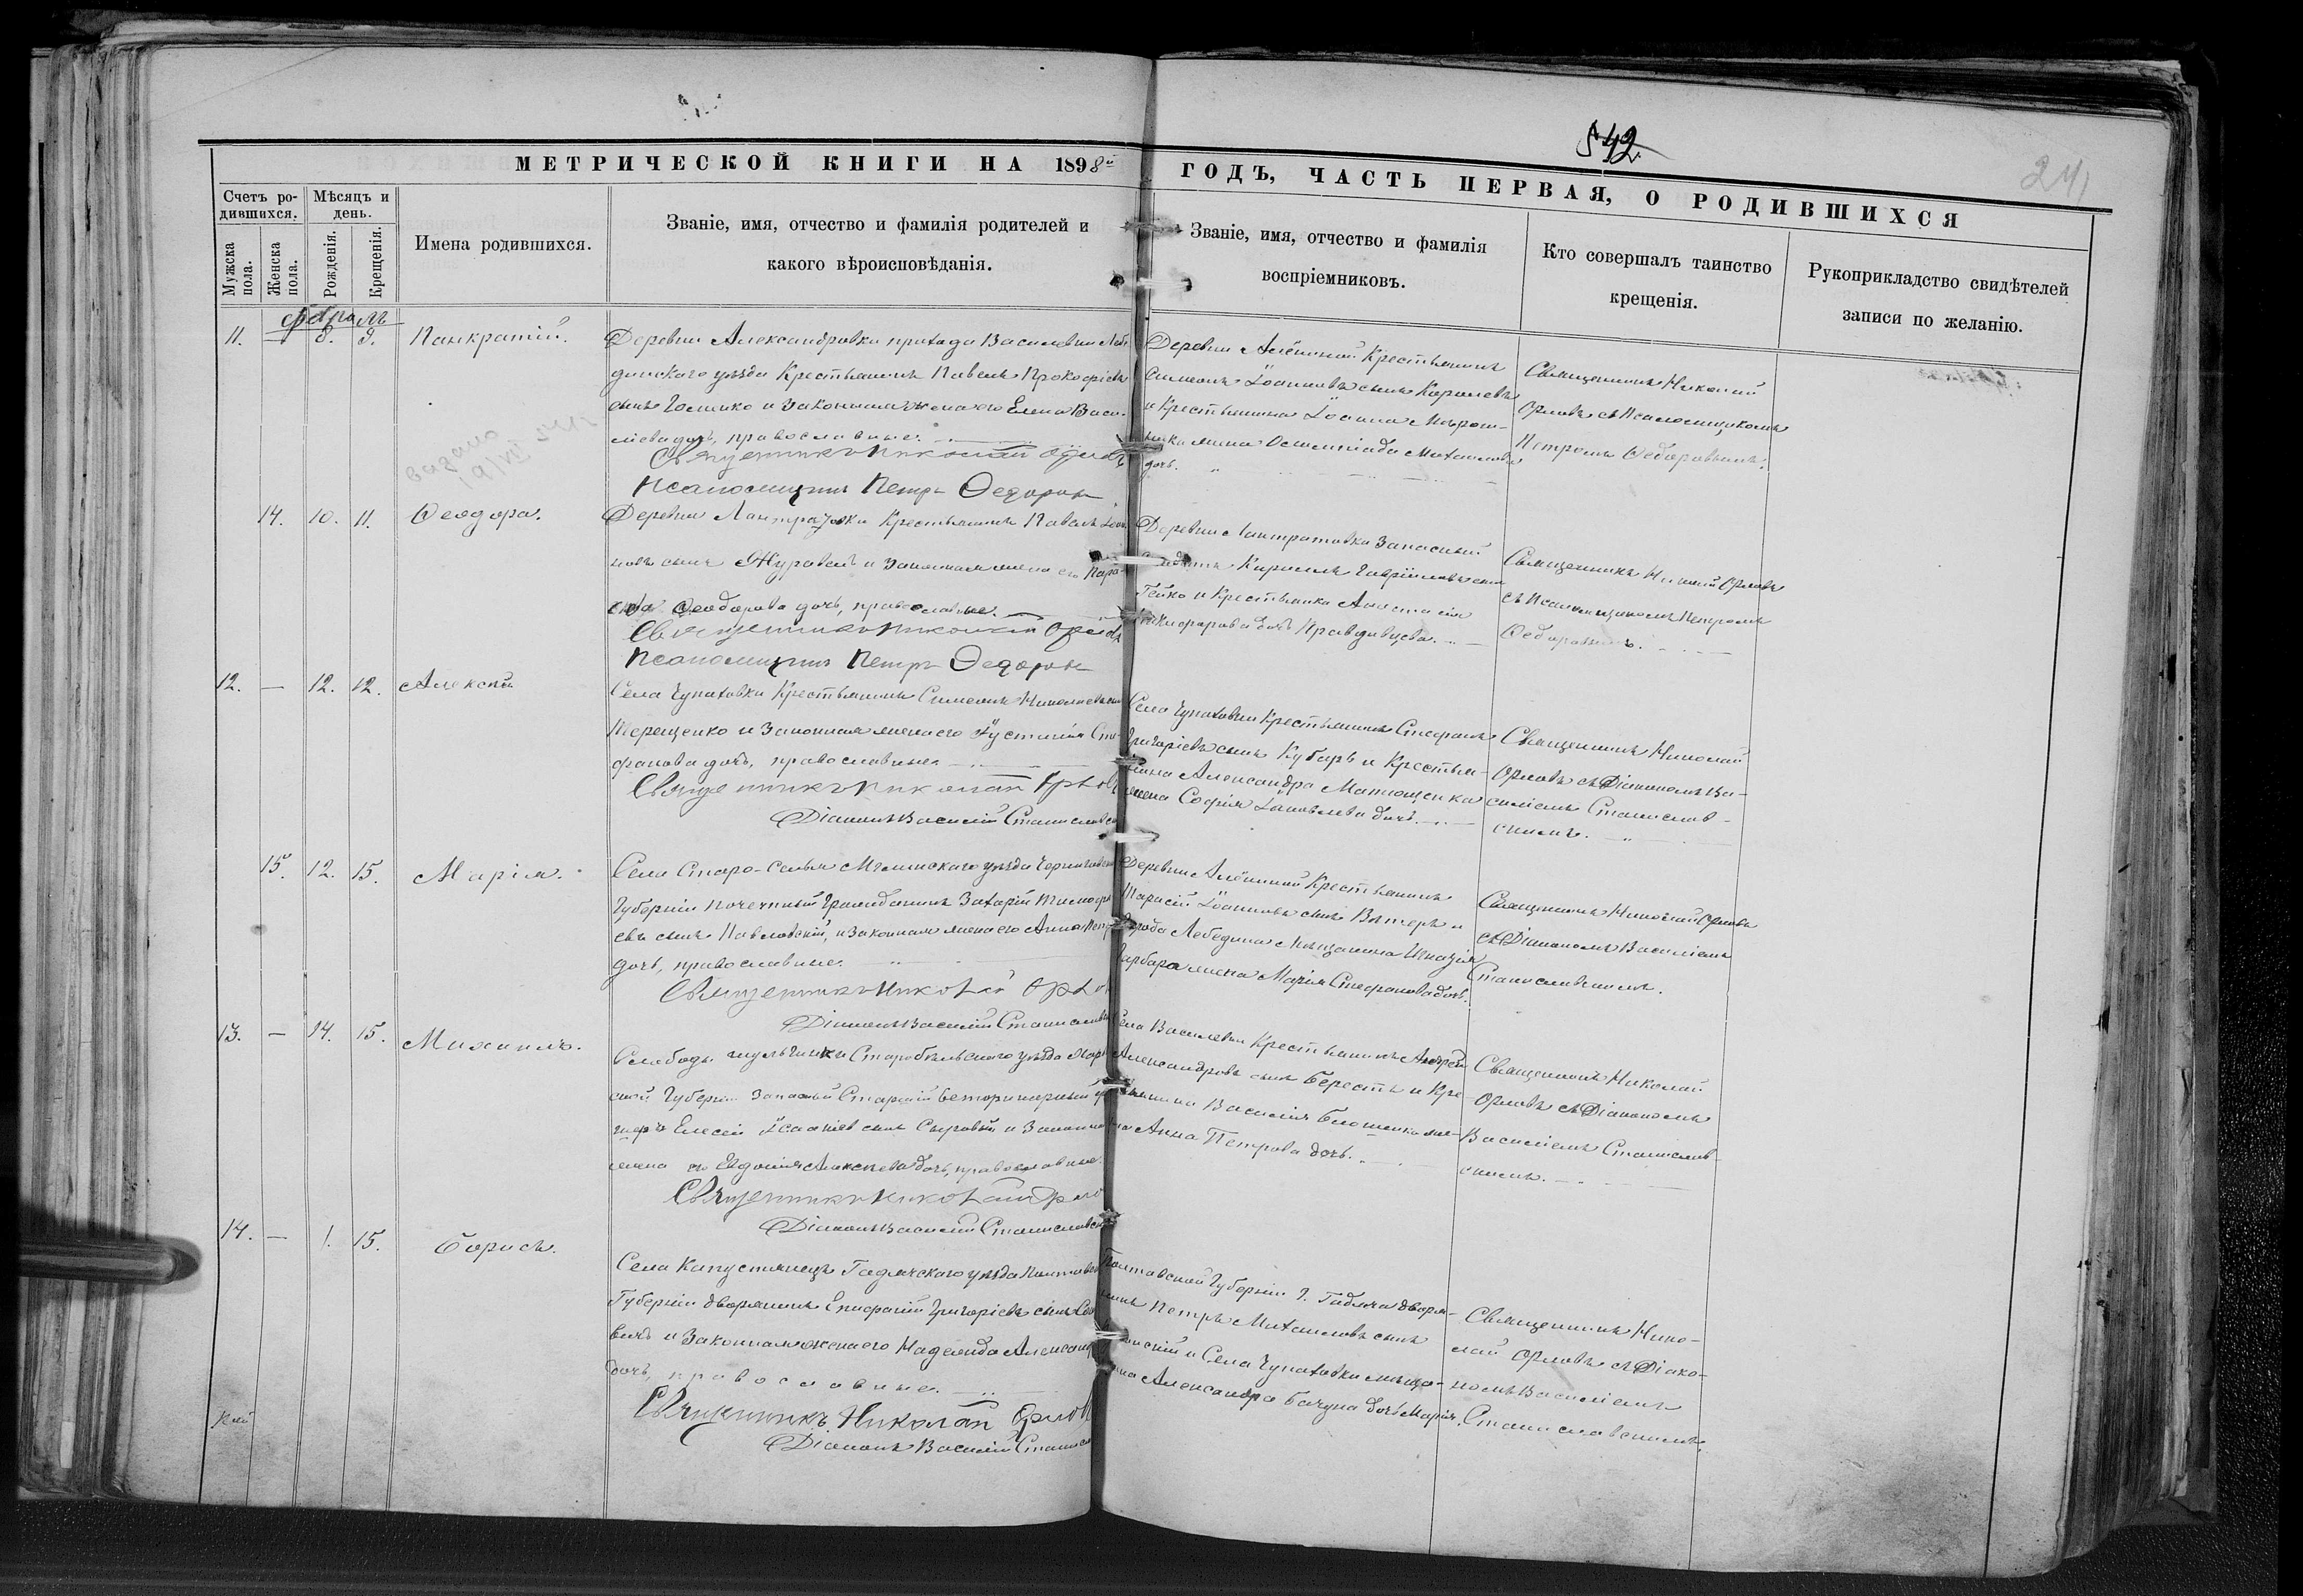 542
24
МЕТРИЧЕСКОЙ КНИГИ НА 1898й ГОДЪ, ЧАСТЬ ПЕРВАЯ, О РОДИВШИХСЯ
Счетъ ро-
дившихся.
Мужска
пола.
Женска
пола.
Мѣсяцъ и
день.
Рожденія.
Крещенія.
Имена родившихся.
Званіе, имя, отчество и фамилія родителей и
какого вѣроисповѣданія.
Званіе, имя, отчество и фамилія
воспріемниковъ.
Кто совершалъ таинство
крещенія.
Рукоприкладство свидѣтелей
записи по желанію.
февраль
11. 8. 9. Панкратій.
Деревни Александровки прихода Василевки Лебе
динскаго уѣзда Крестьянинъ Павелъ Прокофіевъ
сынъ и законная жена его Елена Васи-
лієва дочь, православные.
Священникъ Николай Орловъ
Псаломщикъ Петръ Федоровъ
Деревни Крестьянинъ
Симеонъ Іоанновъ сынъ
и Крестьянина Іоанна
жена Михаилова
дочь.
Священникъ Николай
Орловъ съ Псаломщикомъ
Петромъ Федоровымъ.
выдано
14. 10. 11. Феодора.
Деревни Крестьянинъ Павелъ Іоан-
новъ сынъ Журавель и законная жена его Пара-
Феодорова дочь, православные.
Священникъ Николай Орловъ
Псаломщикъ Петръ Федоровъ
Деревни Запасный
Кириллъ Гавріиловъ сынъ
Гейко и Крестьянка Анастасія
Никифорова дочь
Священникъ Николай Орловъ
съ Псаломщикомъ Петромъ
Федоровымъ.
12. — 12. 12. Алексій
Села Чупаховки Крестьянинъ Симеонъ Николаевъ сынъ
Терещенко и законная жена его Іустинія Сте-
фанова дочь, православные
Священникъ Николай Орловъ
Діаконъ Василій Станиславскі
Села Чупаховки Крестьянинъ Стефанъ
Григоріевъ сынъ Кубарь и Крестья-
нина Александра Матюшенка
жена Софія Іаковлева дочь.
Священникъ Николай
Орловъ съ Діакономъ Ва-
силіемъ Станислав-
скимъ.
15. 12. 15. Марія.
Села Старо-Селья Мглинскаго уѣзда Черниговской
Губерніи почетный Гражданинъ Захарій Тимофе
евъ сынъ Павловскій, и законная жена его Анна Петр
дочь, православные.
Священникъ Николай Орлов
Діаконъ Василій Станиславск
Деревни Крестьянинъ
Тарасій Іоанновъ сынъ Вѣтеръ и
Города Лебедина Мѣщанина Игнатія
жена Марія Стефанова дочь.
Священникъ Николай Орловъ
съ Діакономъ Василіемъ
Станиславскимъ.
13. — 14. 15. Михаилъ.
Слободы Старобѣльскаго уѣзда Харь
ской Губерніи Запасный Старшій ветеринарный
Елесей сынъ и законная
жена его Евдокія Алексеева дочь, православные.
Священникъ Николай Орло
Діаконъ Василій Станиславск
Села Василевки Крестьянинъ Андрей
Александровъ сынъ Берестъ и Кре-
стьянина Василія же-
на Анна Петрова дочь.
Священникъ Николай
Орловъ съ Діакономъ
Василіемъ Станислав-
скимъ.
14. — 1. 15. Борисъ.
Села Капустянецъ Гадячскаго уѣзда Полтавской
Губерніи дворянинъ Епифаній Григоріевъ сынъ
вичъ и законная жена его Надежда Александ
дочь, православные.
Священникъ Николай Орлов
Діаконъ Василій Станисл
Полтавской Губерніи г. Гадяча дворя-
нинъ Петръ Михаиловъ сынъ
и Села Чупаховки мѣща-
нина Александра дочь Марія.
Священникъ Нико-
лай Орловъ съ Діако-
номъ Василіемъ
Станиславскимъ.